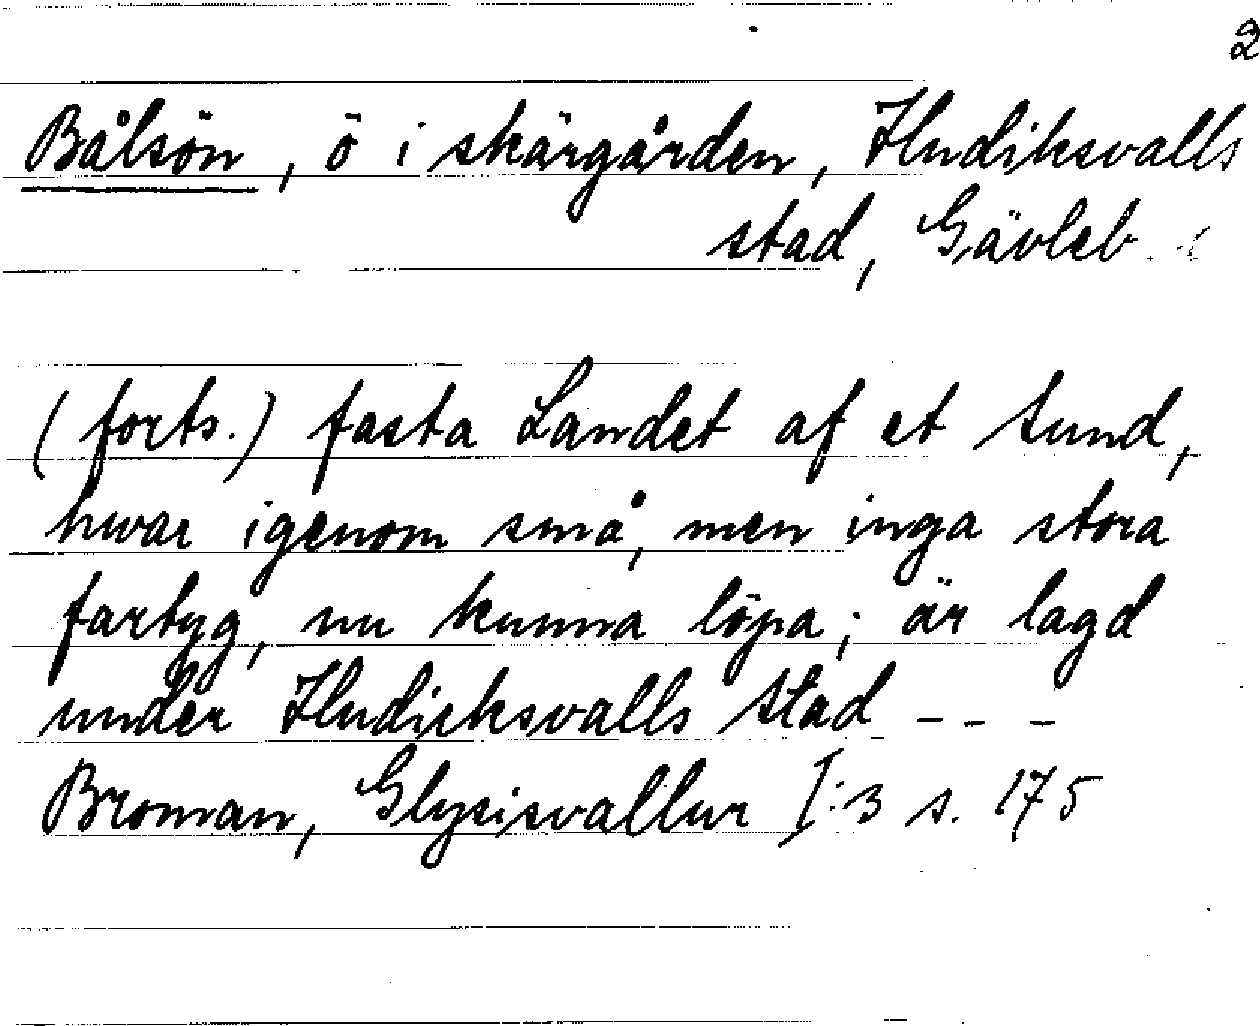 2
Bålsön, ö i skärgården, Hudiksvalls
stad, Gävleb.
(forts.) fasta Landet af et Sund,
hwar igenom små, men inga stora
fartyg, nu kunna löpa; är lagd
under Hudicksvalls Stad - - -
Broman, Glysisvallur I:3 s. 175